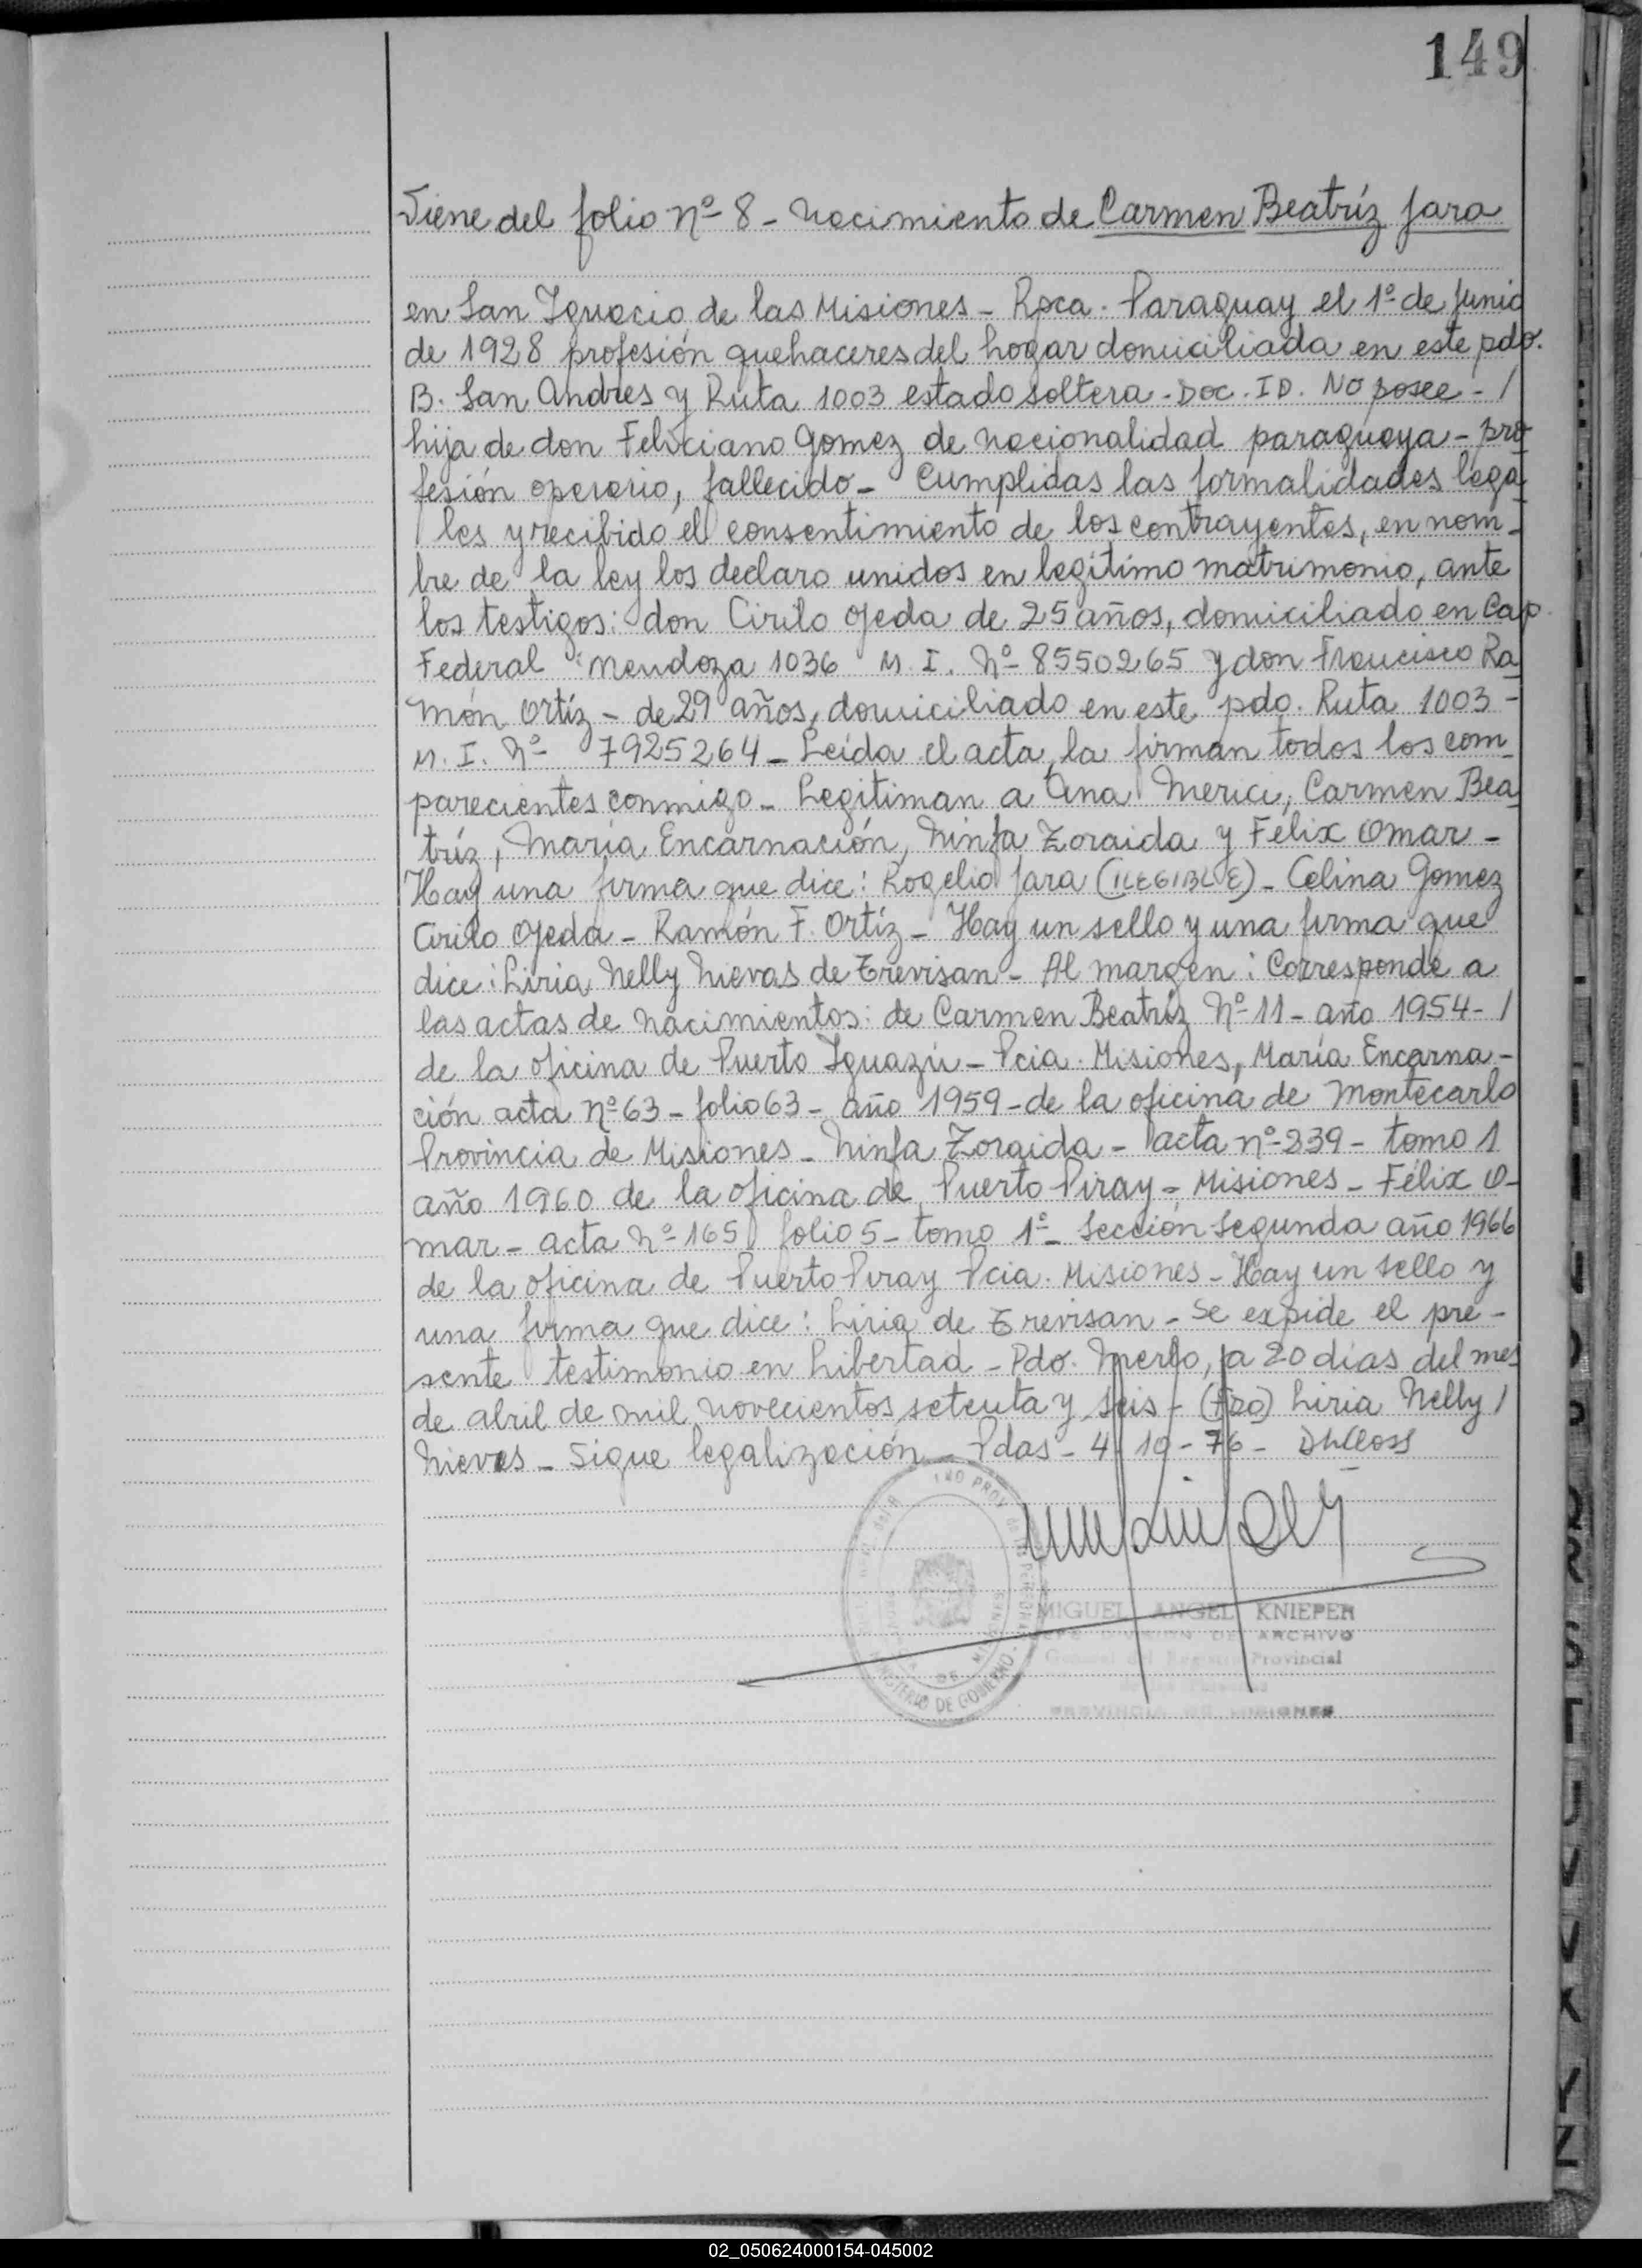 149
Viene del folio nº 8 - Nacimiento de Carmen Beatríz Jara
en San Ignacio de las Misiones - Rpca. Paraguay el 1º de Junio
de 1928 profesión quehaceres del hogar domiciliada en este pdo.
B. San Andres y Ruta 1003 estado soltera - Doc. ID. No posee - /
hija de don Feliciano Gomez de nacionalidad paraguaya - pro
fesión operario, fallecido - Cumplidas las formalidades lega
les y recibido el consentimiento de los contrayentes, en nom -
bre de la ley los declaro unidos en legítimo matrimonio, ante
los testigos: don Cirilo Ojeda de 25 años, domiciliado en Cap.
Federal Mendoza 1036 M. I. Nº 8550265 y don Francisco Ra
món Ortíz - de 29 años, domiciliado en este pdo. Ruta 1003 -
M. I. Nº 7925264 - Leída el acta, la firman todos los com
parecientes conmigo - Legitiman a Ana Merici, Carmen Bea
tríz, María Encarnación, Ninfa Zoraida y Félix Omar -
Hay una firma que dice: Rogelio Jara (ILEGIBLE) - Celina Gomez
Cirilo Ojeda - Ramón F. Ortíz - Hay un sello y una firma que
dice: Liria Nelly Nievas de Trevisan - Al margen: Corresponde a
las actas de nacimientos: de Carmen Beatríz Nº 11 - año 1954 - /
de la oficina de Puerto Iguazú - Pcia. Misiones, María Encarna -
ción acta nº 63 - folio 63 - año 1959 - de la oficina de Montecarlo
Provincia de Misiones - Ninfa Zoraida - acta nº 239 - tomo 1
año 1960 de la oficina de Puerto Piray - Misiones - Félix O -
mar - acta Nº 165 folio 5 - tomo 1º - Sección Segunda año 1966
de la oficina de Puerto Piray Pcia. Misiones - Hay un sello y
una firma que dice: Liria de Trevisan - Se expide el pre -
sente testimonio en Libertad - Pdo. Merlo, a 20 días del mes
de abril de mil novecientos setenta y seis - (Fdo) Liria Nelly /
Nieves - Sigue legalización - Pdas - 4 - 10 - 76 -
MIGUEL ANGEL KNIEPER
DIVISION DE ARCHIVO
General del Registro Provincial
PROVINCIA DE MISIONES
MINISTERIO DE GOBIERNO
02_050624000154-045002